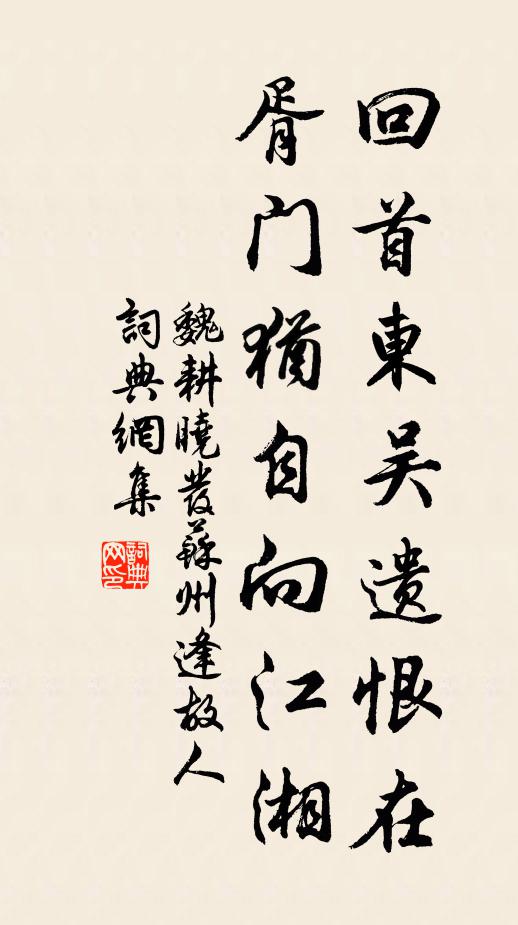 回首東吴遗恨在
胥门猶自向江湘
魏耕曉發蘇州逢故人
詞典網集
詞典网印